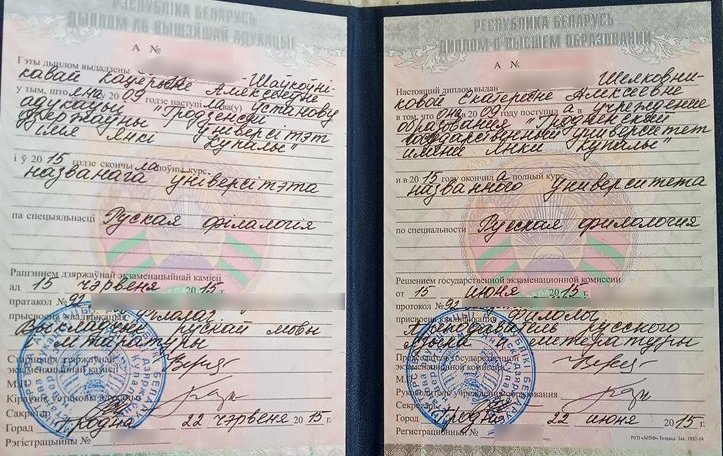 РЕСПУБЛІКА БЕЛАРУСЬ
ДЫПЛОМ АБ ВЫШЭЙШАЙ АДУКАЦЫІ
А №
Гэты дыплом выдадзены Шаўкоўні-
кавай Кацярыне Алексееўне
у тым, што яна 09 годзе паступіла ва(у) установу
адукацыі "Гродзенскі
дзяржаўны універсітэт
імя Янкі Купалы"
і ў 2015 годзе скончыла поўны курс
названага універсітэта
па спецыяльнасці Руская філалогія
Рашэннем дзяржаўнай экзаменацыйнай камісіі
ад 15 чэрвеня 2015 г.
пратакол № 92
прысвоена кваліфікацыя Філолаг.
Выкладчык рускай мовы
і літаратуры
Старшыня дзяржаўнай
экзаменацыйнай камісіі
М.П.
Кіраўнік установы адукацыі
Сакратар
Горад Гродна 22 чэрвеня 2015 г.
Рэгістрацыйны №
РЕСПУБЛИКА БЕЛАРУСЬ
ДИПЛОМ О ВЫСШЕМ ОБРАЗОВАНИИ
А №
Настоящий диплом выдан Шелковни-
ковой Екатерине Алексеевне
в том, что она 09 году поступила в учреждение
образования "Гродненский
государственный университет
имени Янки Купалы"
и в 2015 году окончила полный курс
названного университета
по специальности Русская филология
Решением государственной экзаменационной комиссии
от 15 июня 2015 г.
протокол № 92
присвоена квалификация Филолог.
Преподаватель русского
языка и литературы
Председатель государственной
экзаменационной комиссии
М.П.
Руководитель учреждения образования
Секретарь
Город Гродно 22 июня 2015 г.
Регистрационный №